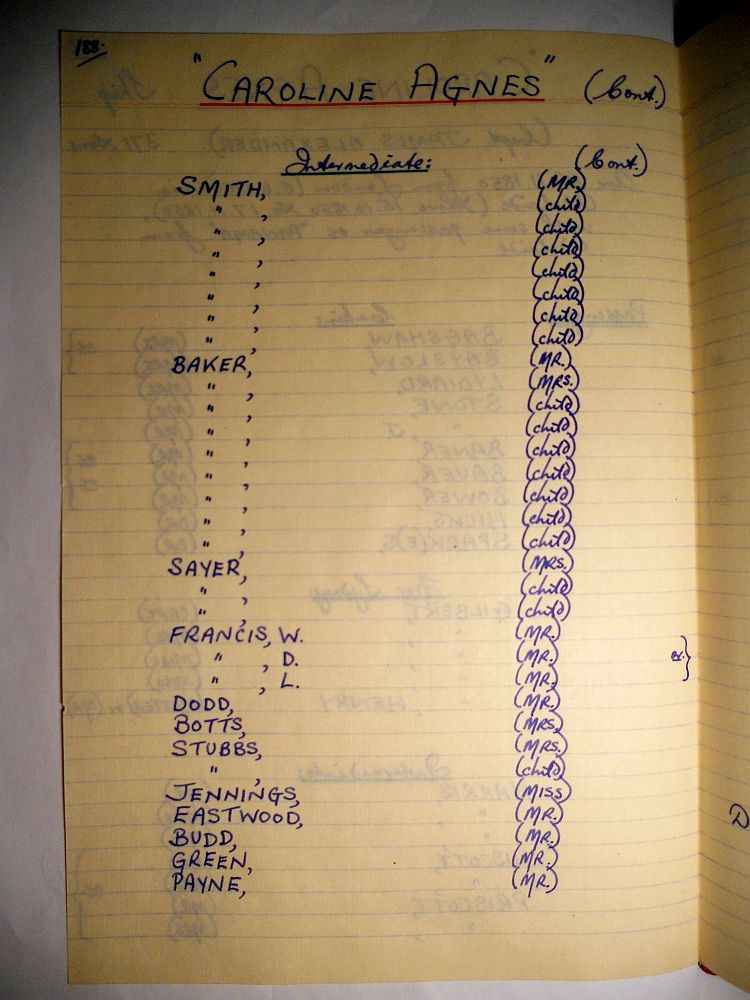 188.
"CAROLINE AGNES" (Cont.)
Intermediate: (Cont.)
SMITH, (MR.)
" , (child)
" , (child)
" , (child)
" , (child)
" , (child)
" , (child)
" , (child)
BAKER, (MR.)
" , (MRS.)
" , (child)
" , (child)
" , (child)
" , (child)
" , (child)
" , (child)
" , (child)
SAYER, (MRS.)
" , (child)
" , (child)
FRANCIS, W. (MR.)
" , D. (MR.) or }
" , L. (MR.)
DODD, (MR.)
BOTTS, (MRS.)
STUBBS, (MRS.)
" , (child)
JENNINGS, (MISS)
EASTWOOD, (MR.)
BUDD, (MR.)
GREEN, (MR.)
PAYNE, (MR.)
D